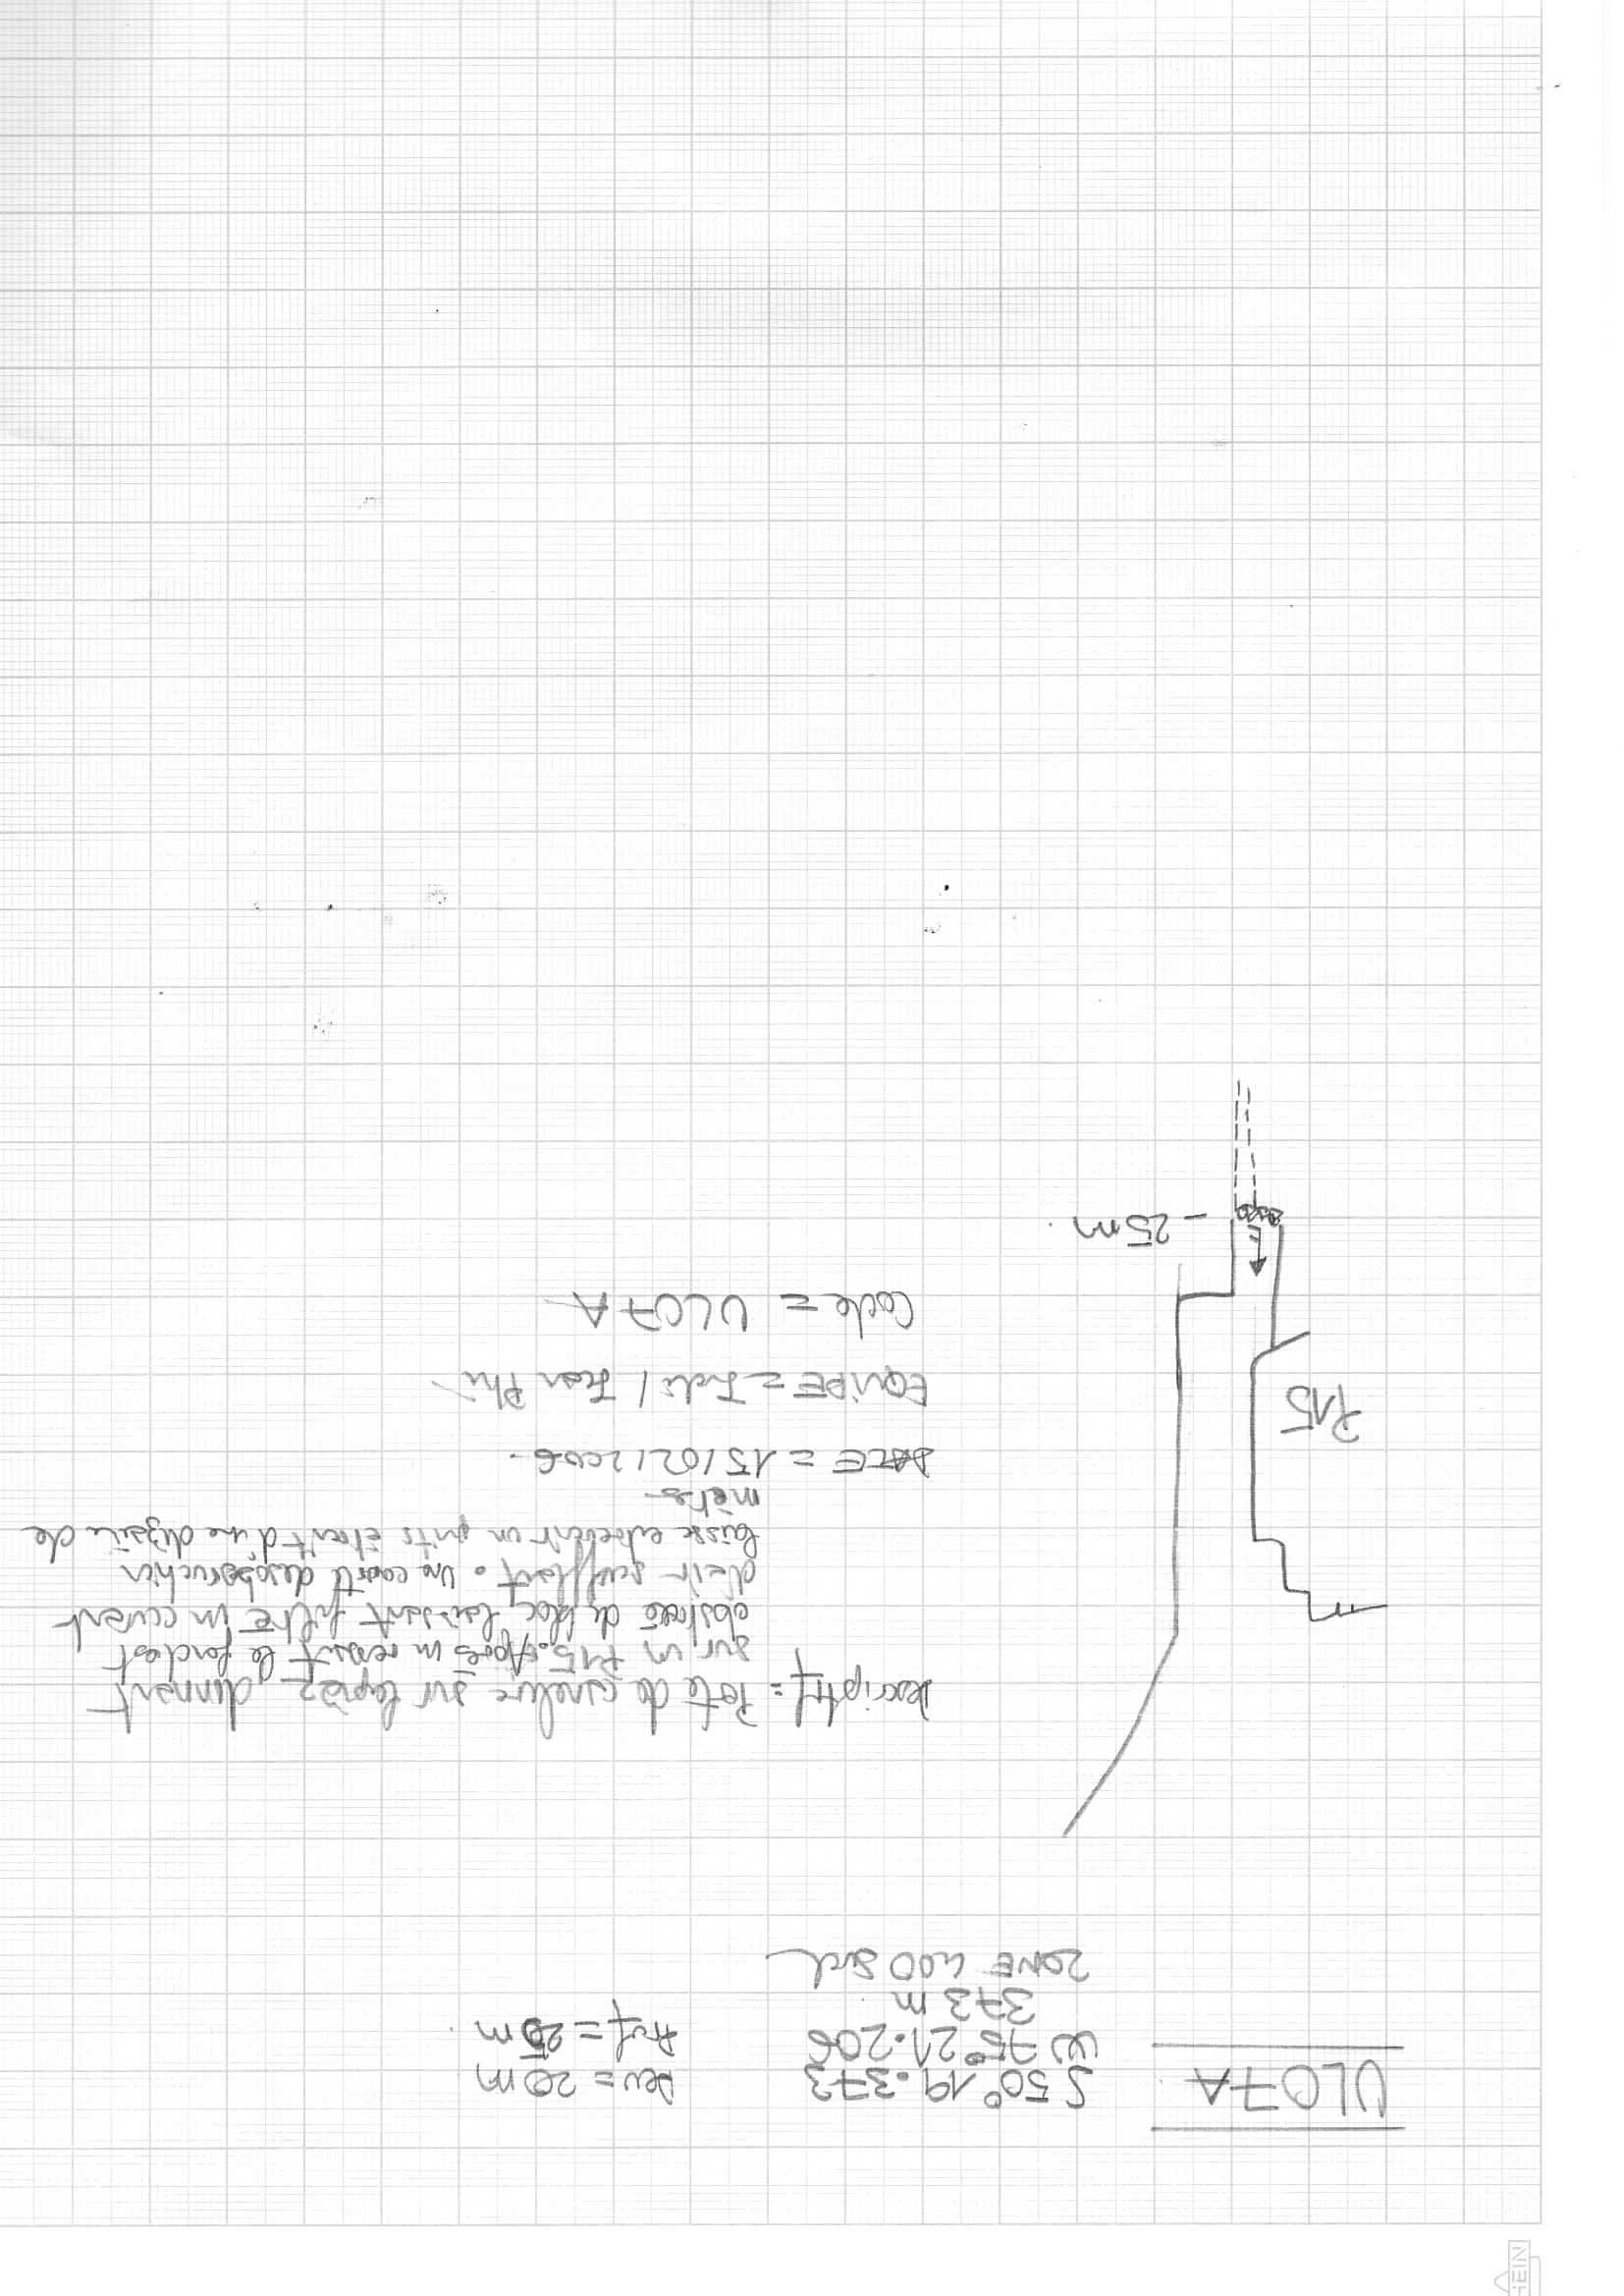 ULC7A
S 50° 19.373
W 75° 21.206
373 m
ZONE 400 Sud
Dev = 20m
Prof = 25m.
Descriptif = Perte de cannelure sur lapiaz donnant
sur un P15. Après un ressaut le fond est
obstrué de bloc laissant filtré un courant
d'air soufflant. Une courte désobstruction
laisse entrevoir un puits étroit d'une dizaine de
mètres.
DATE = 15/02/2006.
EQUIPE = / Jean Phi
Code = ULC7A
P15
- 25m.
HEIN